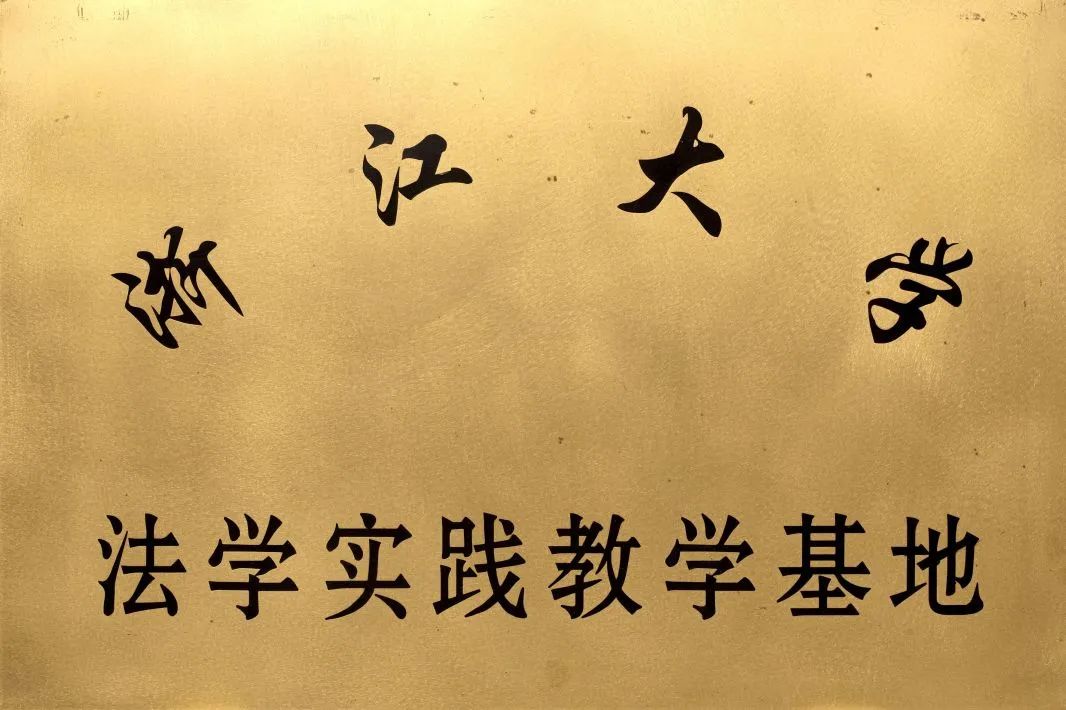 浙江大学
法学实践教学基地